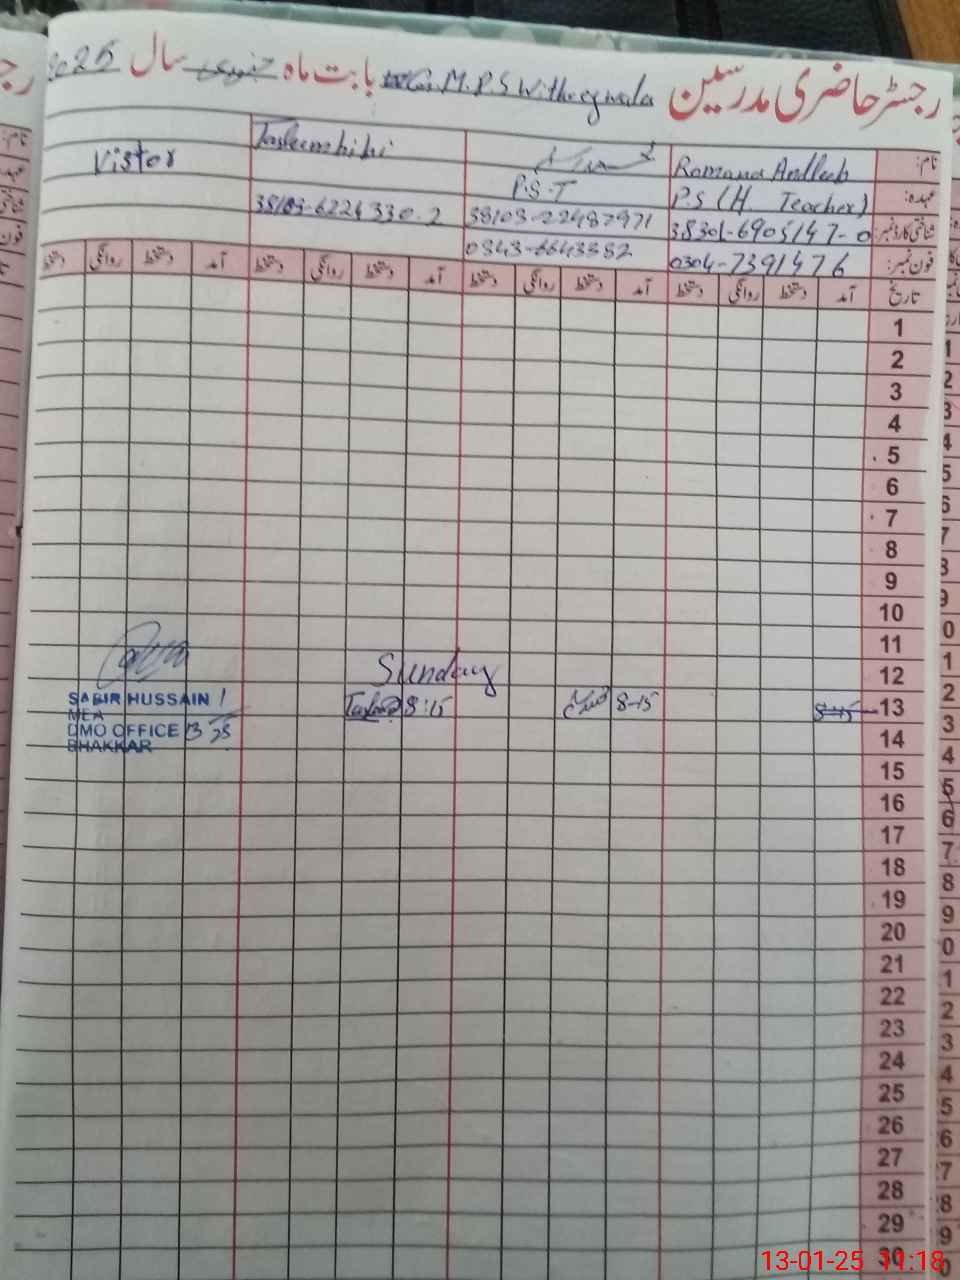 رجسٹر حاضری مدرسین G.M.P.S Withegwala بابت ماہ جنوری سال 2025
نام: Romana Andleeb Tasleem bibi Vistor
عہدہ: P.S (H. Teacher) P.S.T
شناختی کارڈ نمبر: 38301-6905147-0 38103-22487971 38103-6224330-2
فون نمبر: 0304-7391476 0343-6643382
تاریخ آمد دستخط روانگی دستخط آمد دستخط روانگی دستخط آمد دستخط روانگی دستخط آمد دستخط روانگی دستخط
1
2
3
4
5
6
7
8
9
10
11
12 Sunday
13 8-15 8-15 8:15
SABIR HUSSAIN
MEA
DMO OFFICE
BHAKKAR
14
15
16
17
18
19
20
21
22
23
24
25
26
27
28
29
30
13-01-25 11:18